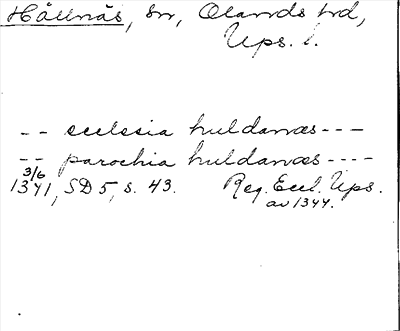 Hållnäs, sn, Olands hd,
Ups. l.
-- ecclesia huldanæs ---
-- parochia huldanæs ----
3/6
1341, SD 5, s. 43. Reg. Eccl. Ups.
av 1344.